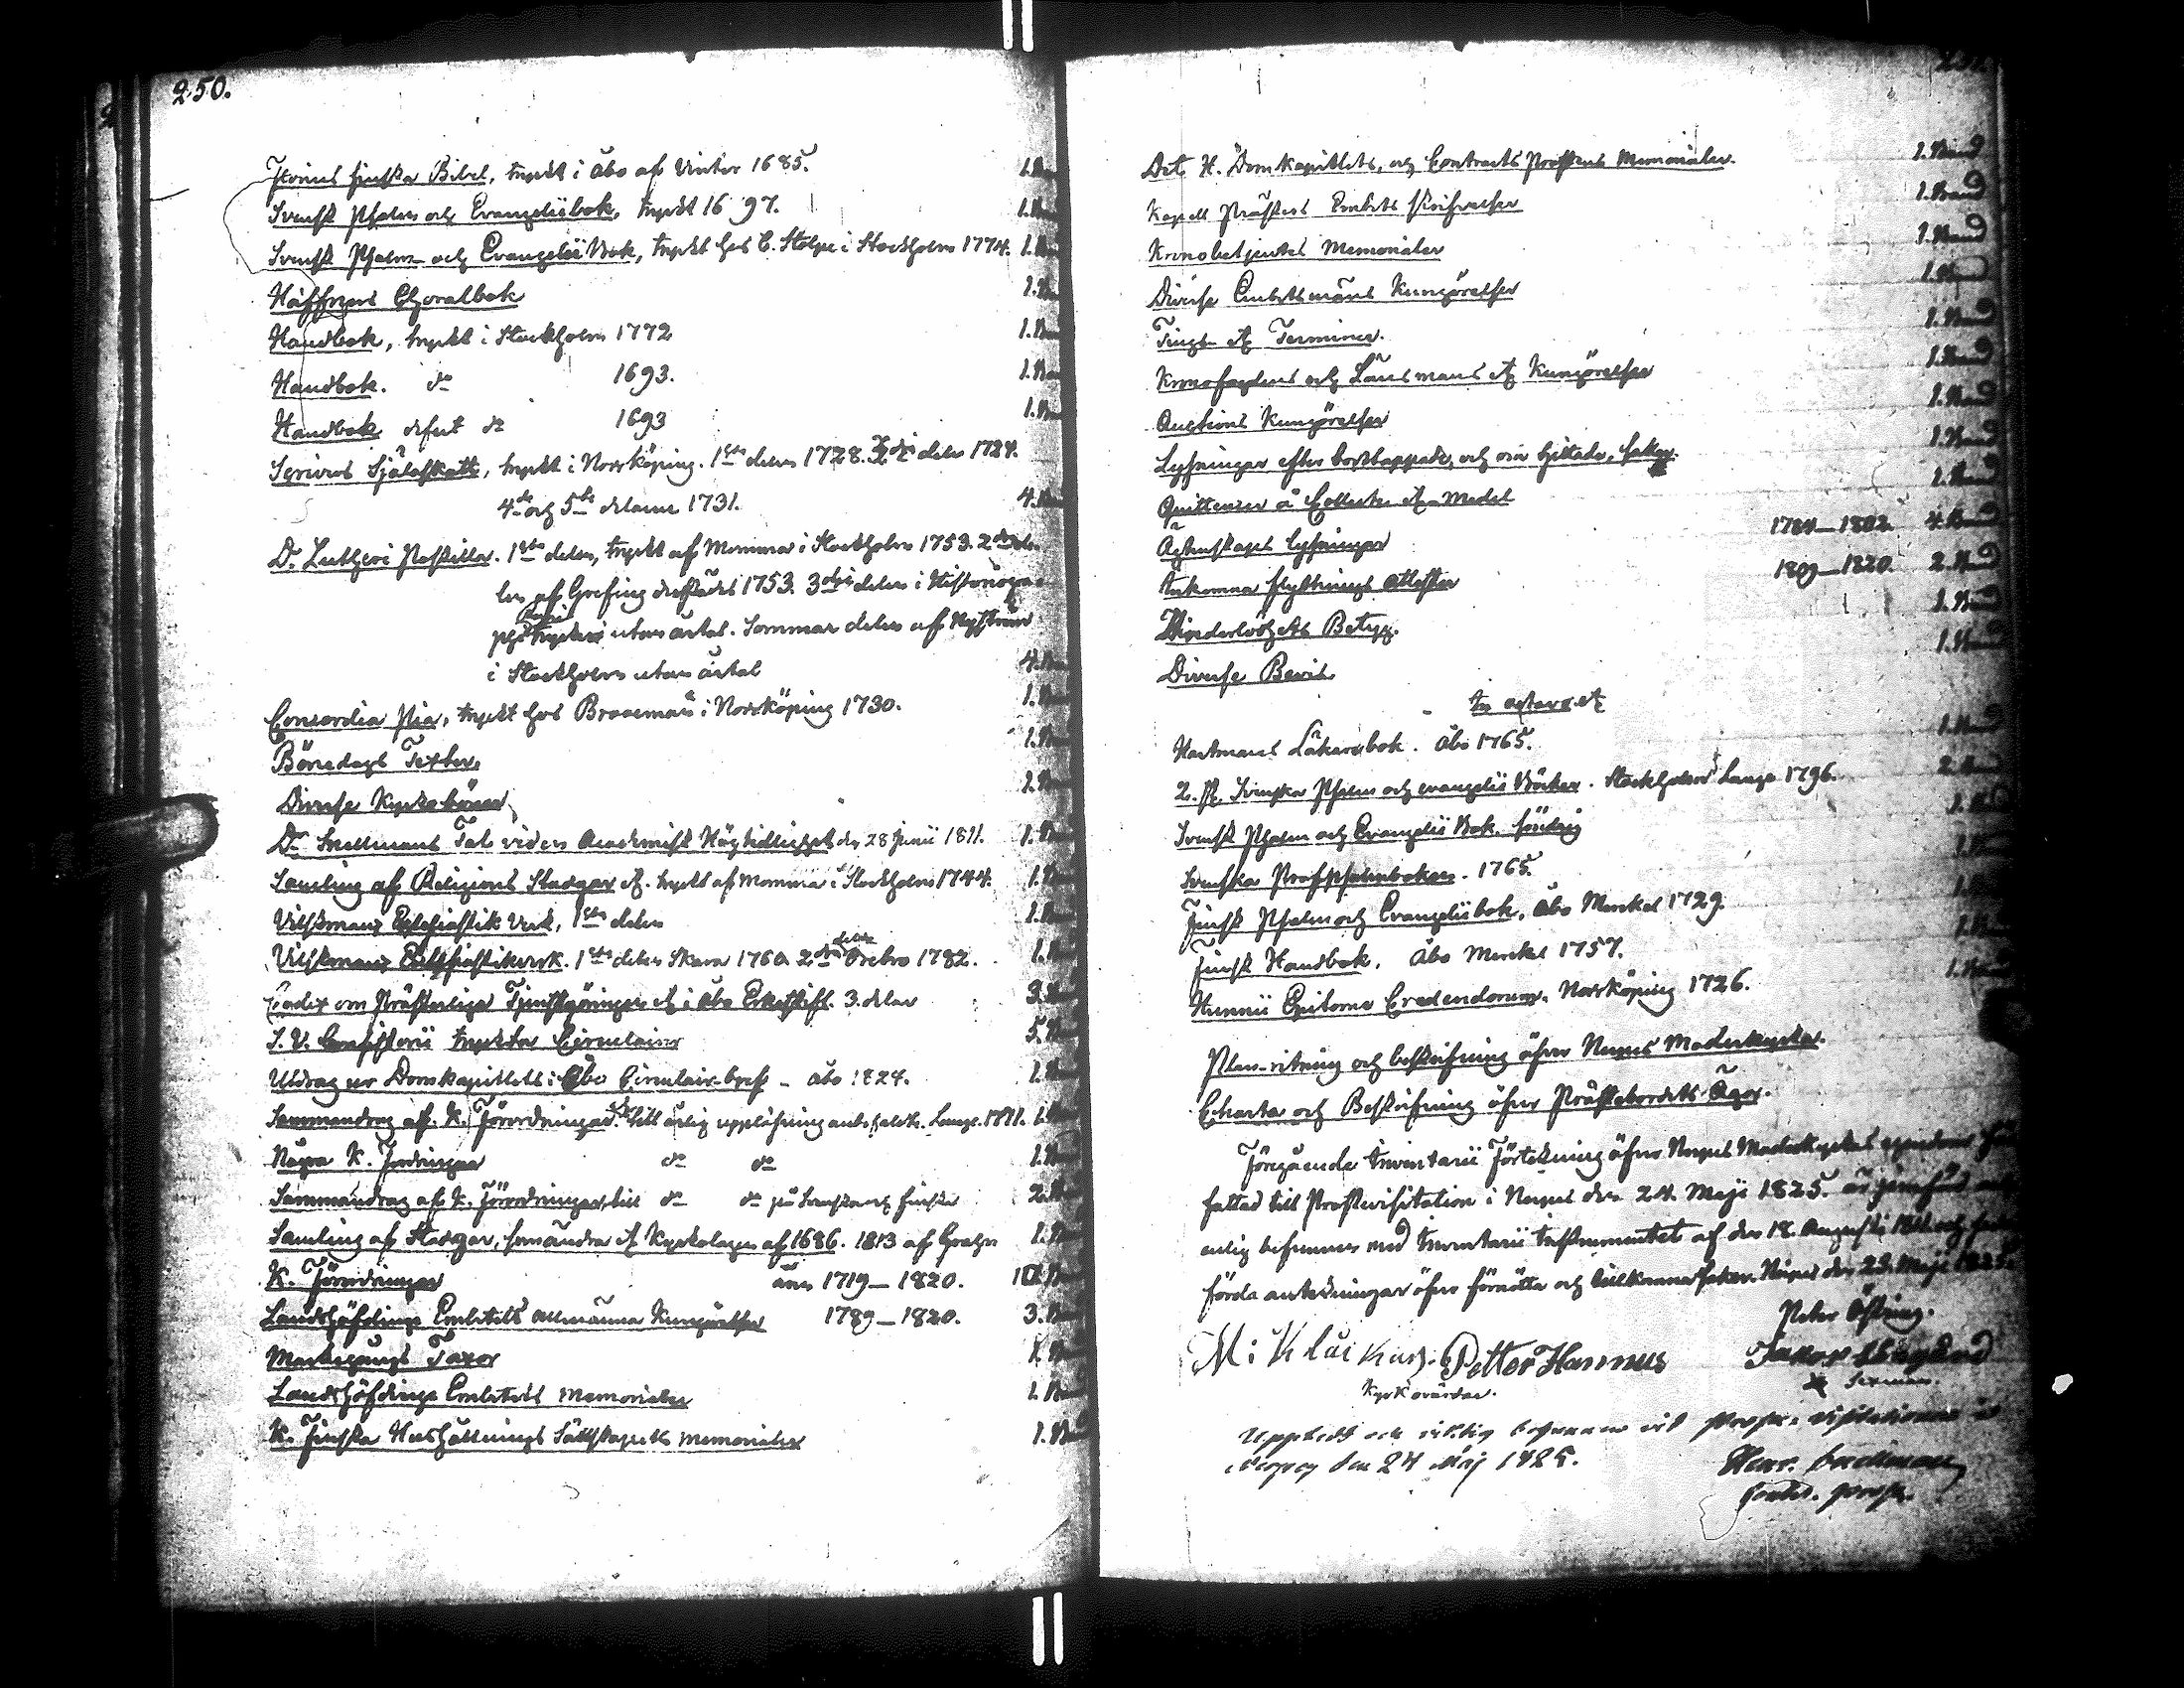 250.
Florinus finska Bibel, tryckt i Åbo af Winter 1685. 1. Band
Svensk Psalm och Evangeliibok, tryckt 1697. 1. Band
Svensk Psalm- och Evangelii Bok, tryckt hos C. Stolpe i Stockholm 1774. 1. Band
Häffners Choralbok 1. Band
Handbok, tryckt i Stockholm 1772 1. Band
Handbok. do 1693. 1. Band
Handbok defect do 1693 1. Band
Scrivers Själaskatt, tryckt i Norrköping. 1sta delen 1728. 2dra delen 1724.
4de och 5te delarne 1731. 4. Band
Dr. Lutheri Postilla. 1sta delen, tryckt af Momma i Stockholm 1753. 2dra de-
len af Grefing derstädes 1753. 3dje delen i Historiogra-
phi tryckeri utan årtal. Sommar delen af Nyström
i Stockholm utan årtal 4. Band
Concordia Pia, tryckt hos Brocman i Norrköping 1730. 1. Band
Bönedags Texter. 1. Band
Diverse Kyrkoböner 1. Band
Dr. Snellmans Tal vid en Academisk Högtidlighet den 28 Junii 1811. 1. Band
Samling af Religions Stadgar &. tryckt af Momma i Stockholm 1744. 1. Band
Vilskmans Eclesiastik Verk, 1sta delen 1. Band
Vilskmans Ecclesiastikverk. 1sta delen Skara 1760. 2dra delen Örebro 1782. 1. Band
Codex om Prästerliga Tjenstgöringen & i Åbo Erkestift. 3. delar 3. Band
S. V. Consistorii tryckta Circulairer 5. Band
Utdrag ur Domkapitlets i Åbo Circulair-bref - Åbo 1824. 1. Band
Sammandrag af K. Förordningar till årlig uppläsning anbefalde. Lange. 1791. 1. Band
Några K. Fordningar do do 1. Band
Sammandrag af K. Förordningar, till do do på Svenska och finska 2. Band
Samling af Stadgar, som ändra & Kyrkolagen af 1686. 1813 af Grahn 1. Band
K. Förordningar åren 1719–1820. Band
Landshöfdinge Embetets allmänna Kungörelser 1789–1820. 3. Band
Markegångs Taxor 1. Band
Landshöfdinge Embetets Memorialer 1. Band
K. Finska Hushållnings Sällskapets Memorialer 1. Band
Det H. Domkapitlets, och Contracts Prostens Memorialer. 1. Band
Kapell Prästers Embets Skrifvelser 1. Band
Kronobetjentes Memorialer 1. Band
Diverse Embetsmäns Kungörelser 1. Band
Tings & Terminer. 1. Band
Kronofogdens och Länsmans & Kungörelser 1. Band
Auctions Kungörelser 1. Band
Lysningar efter bortlappade, och om hittade, saker. 1. Band
Quittencer å Collecte & Medel 1. Band
Ägtenskaps Lysningar 1784–1802. 4. Band
Inkomna flyttnings Attester 1809–1820. 2. Band
Hinderlöshets Betyg. 1. Band
Diverse Bevis. 1. Band
In octavo &
Hartmans Läkarebok. Åbo 1765. 1. Band
2. st. Svenska Psalm och evangelii Böcker. Stockholm Lange 1796. 2. Band
Svensk Psalm och Evangelii Bok. söndrig
Svenska Profpsalmboken. 1765.
Finsk Psalm och Evangeliibok, Åbo Merckel 1729.
Finsk Handbok. Åbo Merckel 1757.
Hunnii Epitome Credendorum. Norrköping 1726.
Plan-ritning och beskrifning öfver Nerpes Moderkyrka.
Charta och Beskrifning öfver Prästebordets Ägor.
Föregående Inventarii Förtekning öfver Nerpes Moderkyrkas egendom för-
fattad till Prostvisitation i Nerpes den 24. Maji 1825. är jemförd och
enlig befunnen med Inventarii Instrumentet af den 18. Augusti och
förda anteckningar öfver förnötta och tillkomna saker. Nerpes den 23. Maji 1825.
Peter Östring.
Petter Hannus
Kyrkovärdar. Sexman.
Uppläst och riktig befunnen vid Prosts-visitationen i
Nerpes den 24 Maj 1825.
Henr. Snellman
Contr. Prost.